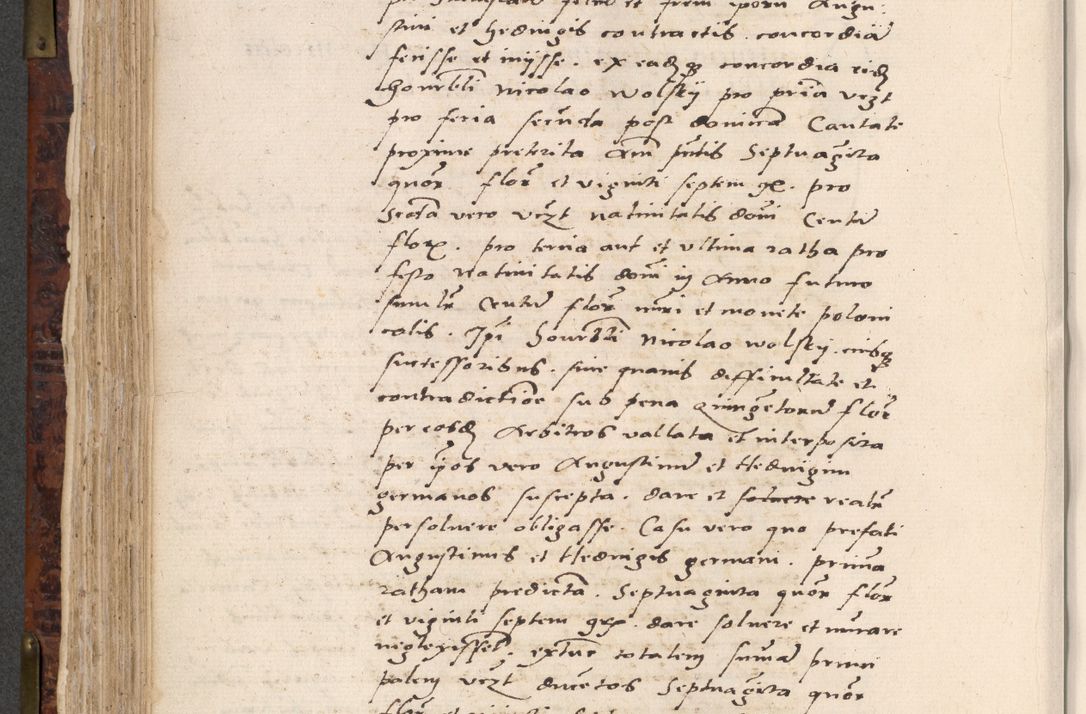 stini et Hedvigis contractis. concordiā
fecisse et iniisse. ex eadē qz concordia eidē
honorabili Nicolao Wolskij pro prima vczt
pro feria secūda post dominicā Cantate
proxime preterita Anni pñtis Septuagīta
quor flor et viginti septem gr. pro
Secūda vero vczt nativitatis domi Centū
florz. pro tercia aut et vltima ratha pro
festo Nativitatis domi in Anno futuro
simulr Centū flor nūri et monete poloni
calis. Ipi honorabili Nicolao wolskij. eiusqz
successoribus. sine quavis difficultate et
contradictione sub pena Quingētorum flor
per eosdē Arbitros vallata et interposita
per ipos vero Augustinū et Hedvigim
germanos suscepta. dare et realr
persolvere obligasse. Casu vero quo prefati
Augustinus et Hedvigis germani. primā
ratham predictā. Septuaginta quor flor
et viginti septem grx. dare solvere et nūrare
neglexissent. extūc totalem sumā princi
palem vczt ducentos Septuagīta quor